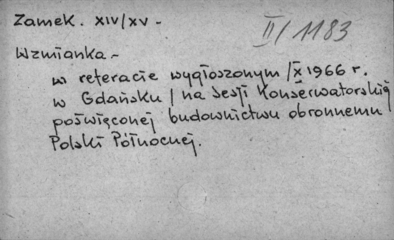 Zamek. XIV/XV -
II/1183
Wzmianka -
w referacie wygłoszonym /X 1966 r.
w Gdańsku / na Sesji Konserwatorskiej
poświęconej budownictwu obronnemu
Polski Północnej.